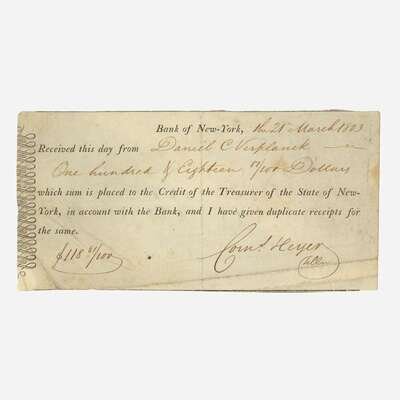 Bank of New-York, the 21 March 1803
Received this day from Daniel C Verplanck
One hundred & Eighteen /100 Dollars
which sum is placed to the Credit of the Treasurer of the State of New-
York, in account with the Bank, and I have given duplicate receipts for
the same.
$118 /100
Corns. Heyer